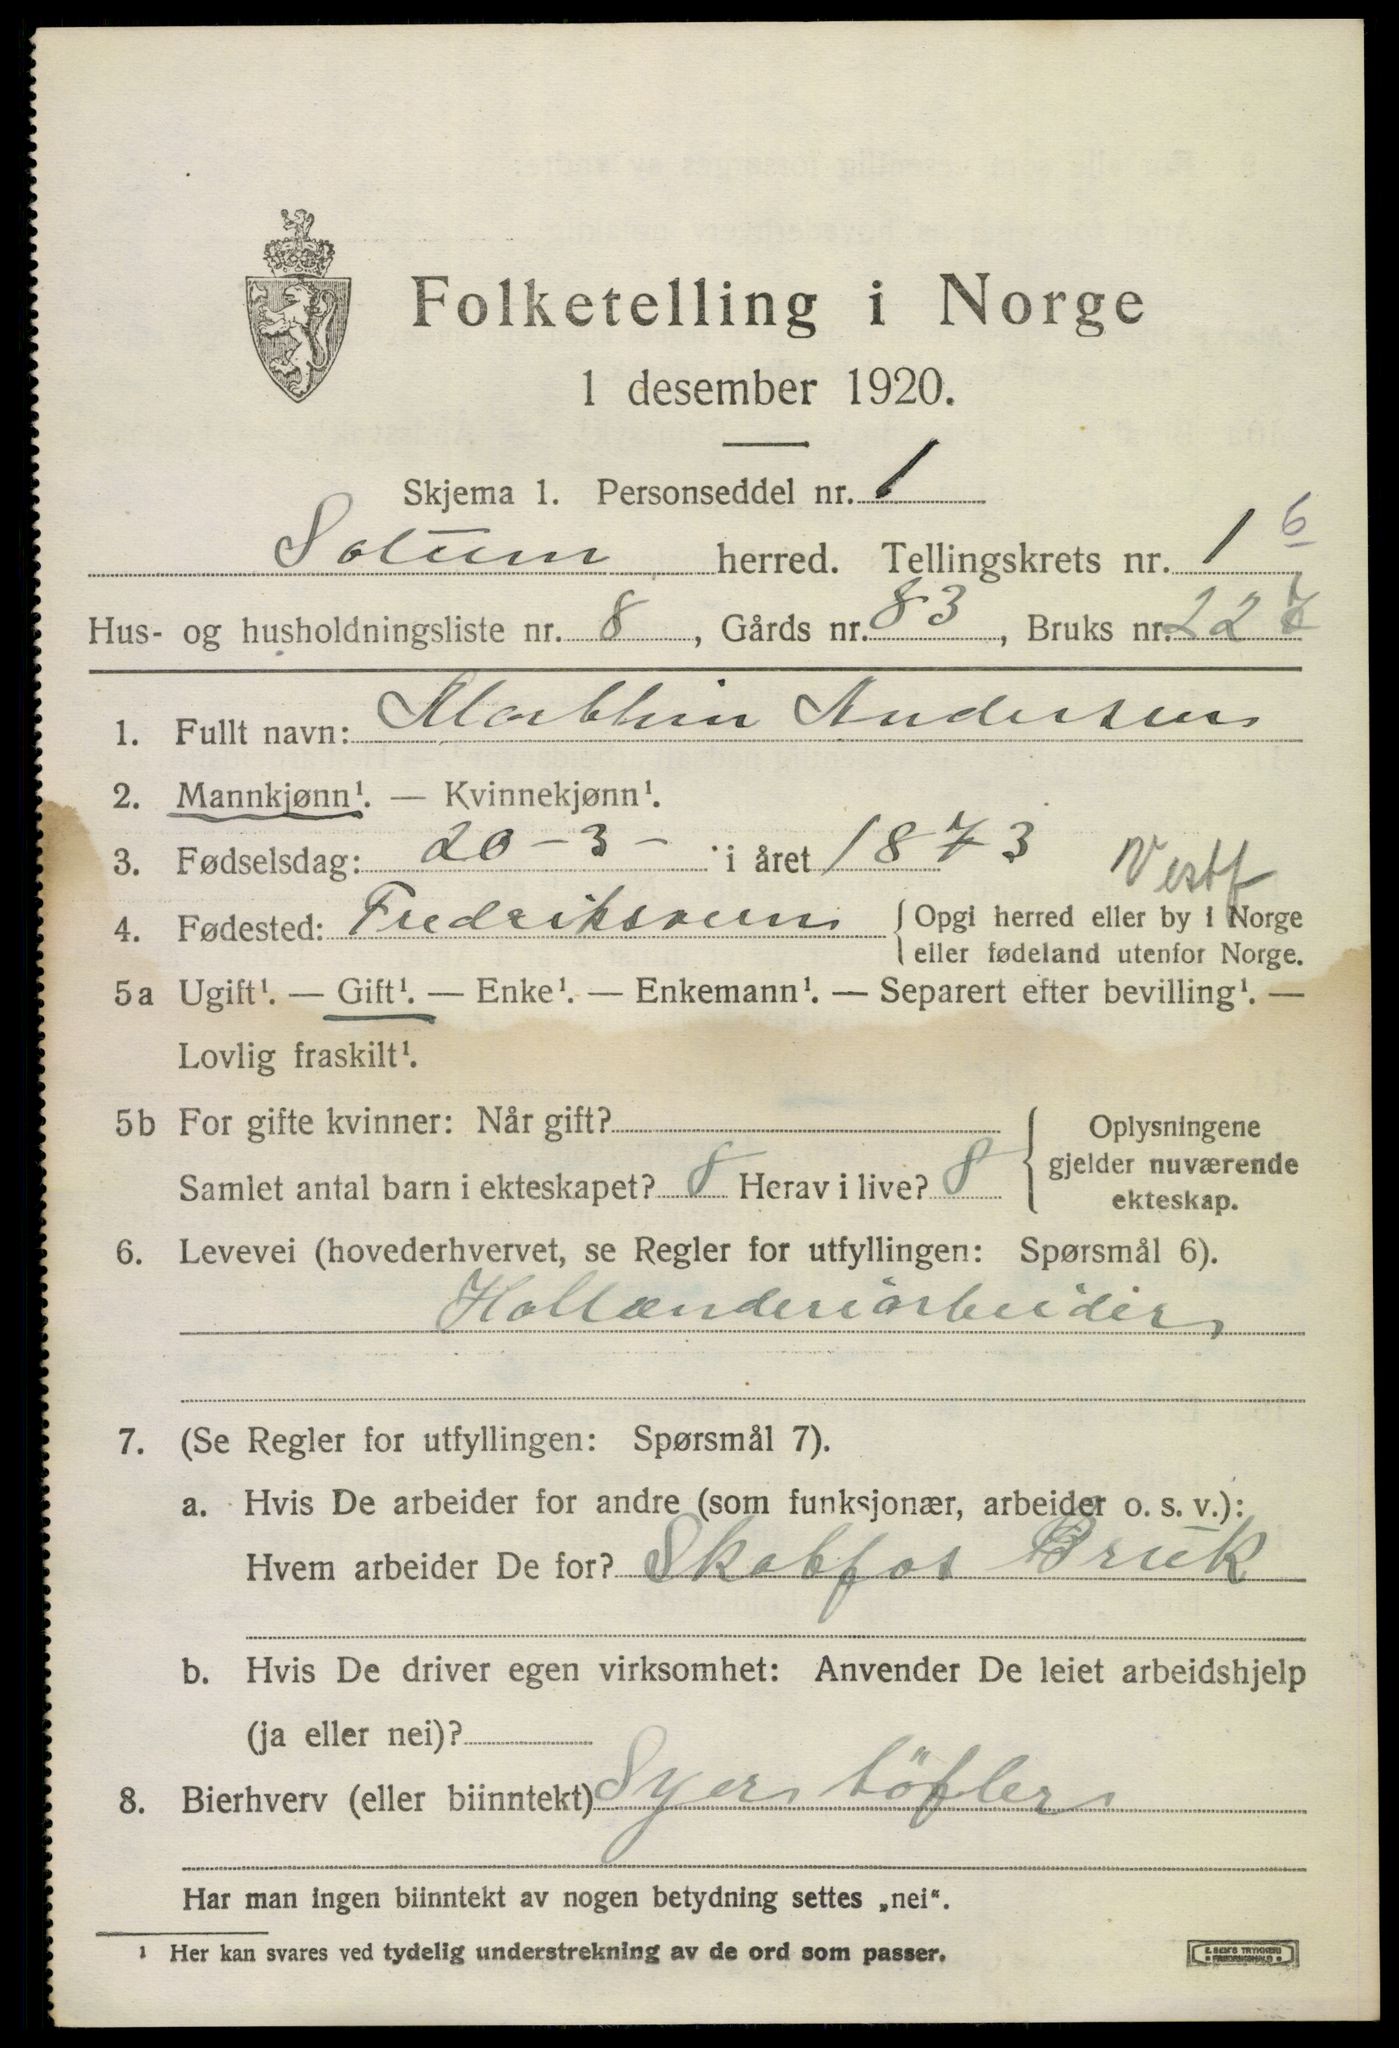 Folketelling i Norge
1 desember 1920.
Skjema 1. Personseddel nr. 1
Solum herred. Tellingskrets nr. 1 6
Hus- og husholdningsliste nr. 8, Gårds nr. 83, Bruks nr. 227
1. Fullt navn: Marthin Andersen
2. Mannkjønn¹. — Kvinnekjønn¹.
3. Fødselsdag: 20-3- i året 1873
Vestf
4. Fødested: Fredriksvern { Opgi herred eller by i Norge
eller fødeland utenfor Norge.
5a Ugift¹. — Gift¹. — Enke¹. — Enkemann¹. — Separert efter bevilling¹. —
Lovlig fraskilt¹.
5b For gifte kvinner: Når gift?
Samlet antal barn i ekteskapet? 8 Herav i live? 8
Oplysningene
gjelder nuværende
ekteskap.
6. Levevei (hovederhvervet, se Regler for utfyllingen: Spørsmål 6).
Hollænderiarbeider
7. (Se Regler for utfyllingen: Spørsmål 7).
a. Hvis De arbeider for andre (som funksjonær, arbeider o. s. v.):
Hvem arbeider De for? Skotfos Bruk
b. Hvis De driver egen virksomhet: Anvender De leiet arbeidshjelp
(ja eller nei)?
8. Bierhverv (eller biinntekt) Syer töfler
Har man ingen biinntekt av nogen betydning settes „nei“.
¹ Her kan svares ved tydelig understrekning av de ord som passer.
E. SEM'S TRYKKERI
FREDRIKSHALD